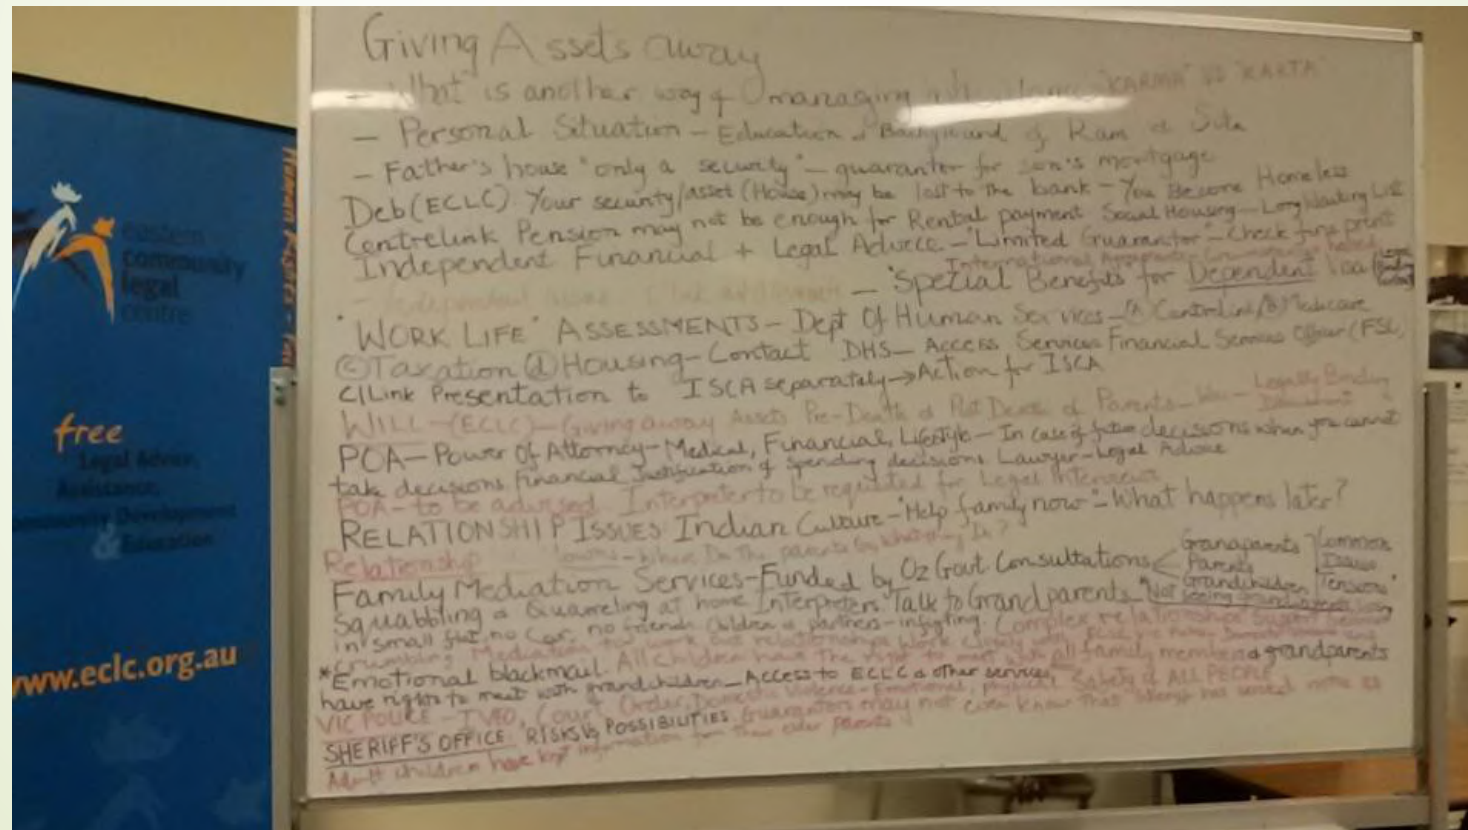 eastern
community
legal
centre
free
Legal Advice,
Assistance,
Community Development
& Education
www.eclc.org.au
Giving Assets away
- What is another way of managing "KARMA" VS "KARTA"
- Personal Situation - Education & Background of Ram & Sita
- Father's house "only a security" - guarantor for son's mortgage
Deb (ECLC) Your security/asset (House) may be lost to the bank - You Become Homeless
Centrelink Pension may not be enough for Rental payment Social Housing - Long Waiting List
Independent Financial + Legal Advice - "Limited Guarantor" - Check fine print
- "Special Benefits" for Dependent
"WORK LIFE" ASSESSMENTS - Dept Of Human Services - (A) Centrelink/(B) Medicare
(C) Taxation (d) Housing - Contact DHS - Access Services Financial Services Officer (FSO)
C/Link Presentation to ISCA separately → Action for ISCA
WILL - (ECLC) - Giving away Assets Pre-Death & Post Death of Parents - Legally Binding
POA - Power Of Attorney - Medical, Financial, Lifestyle - In case of future decisions when you cannot
take decisions Financial Justification of spending decisions Lawyer - Legal Advice
POA - to be advised Interpreter to be requested for Legal Interview
RELATIONSHIP ISSUES: Indian Culture - "Help family now" - What happens later?
Relationship
Family Mediation Services - Funded by Oz Govt Consultations Grandparents Parents Grandchildren Common Issues Tensions
Squabbling & Quarreling at home Interpreters Talk to Grandparents "Not seeing grandparents
in small flat, no car, no friends Children & partners - Complex relationships
Mediation relationships
*Emotional blackmail. All children have the right to all family members & grandparents
have rights to meet with grandchildren - Access to ECLC & other services, Safety of ALL PEOPLE
VIC POLICE - IVEO, Court Order, Domestic Violence - Emotional, physical
SHERIFF'S OFFICE: RISKS Vs POSSIBILITIES Guarantors may not even know that
Adult children have kept information from their older parents